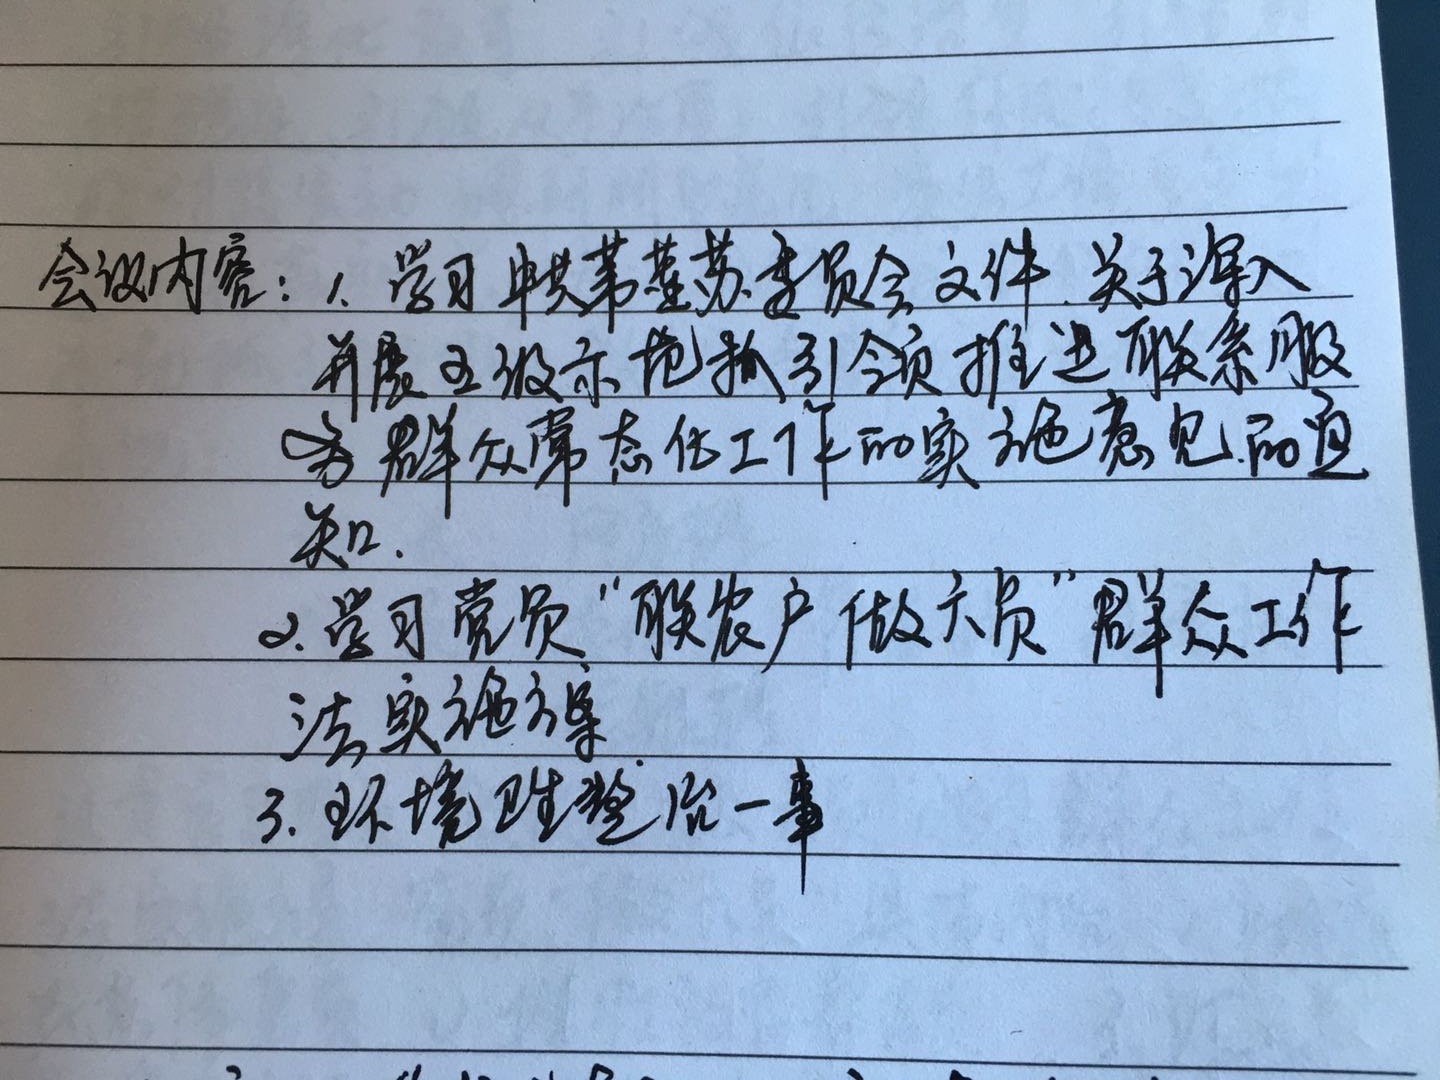 会议内容：1、学习中共苇莲苏委员会文件.关于深入
开展五级示范抓引领推进联系服
务群众常态化工作的实施意见.的通
知.
2.学习党员“联农户做六员”群众工作
法实施方案
3.环境卫生整治一事